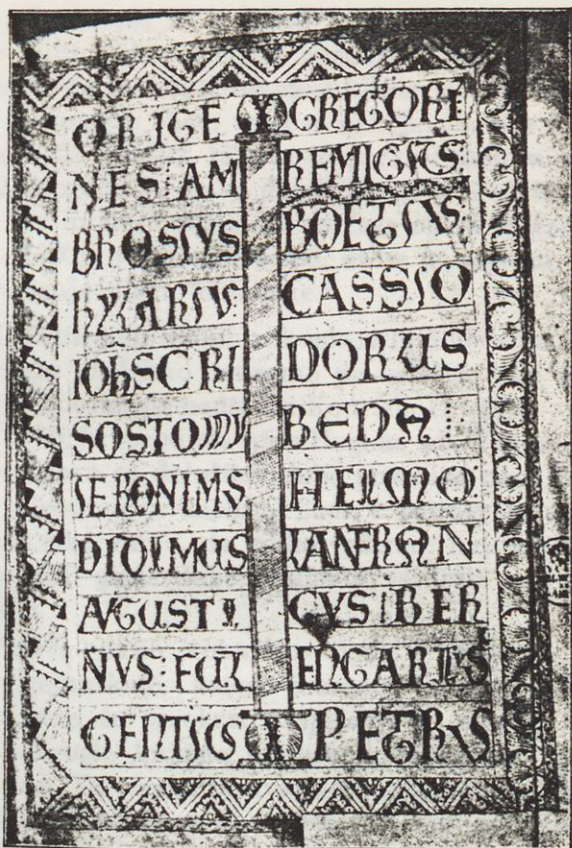 ORIGE
NES : AM
BROSIVS
hYLARIV:
IOhSCRI
SOSTOMV
IERONIMS
DIDIMUS
AVGUSTI
NVS : FUL
GENTIUS
GREGORI
REMIGIUS:
BOETIVS:
CASSIO
DORUS
BEDA
HEIMO:
LANFRAN
CVS : BER
ENGARIUS
PETRUS